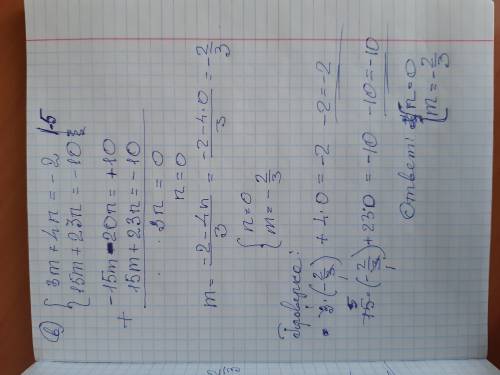 в) { 3m + 4n = -2 | -5
{ 15m + 23n = -10
+ -15m - 20n = +10
15m + 23n = -10
3n = 0
n = 0
m = (-2 - 4n)/3 = (-2 - 4·0)/3 = -2/3
{ n = 0
{ m = -2/3
Проверка:
3·(-2/3) + 4·0 = -2 -2 = -2
15·(-2/3) + 23·0 = -10 -10 = -10
Ответ: { n = 0
{ m = -2/3